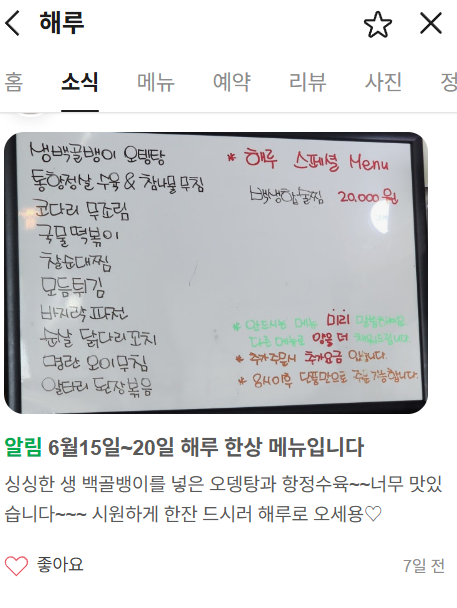 해루
홈 소식 메뉴 예약 리뷰 사진 정
생백골뱅이 오뎅탕
통항정살 수육 & 참나물 무침
코다리 무조림
국물 떡볶이
찰순대찜
모듬튀김
바지락 파전
순살 닭다리꼬치
명란 오이무침
알타리 된장볶음
* 해루 스페셜 Menu
백생합술찜 20,000원
* 안드시는 메뉴 미리 말씀하세요
다른메뉴로 양을 더 채워드립니다
* 추가주문시 추가요금 있습니다.
* 8시이후 단품만으로 주문가능합니다.
알림 6월15일~20일 해루 한상 메뉴입니다
싱싱한 생 백골뱅이를 넣은 오뎅탕과 항정수육~~너무 맛있
습니다~~~ 시원하게 한잔 드시러 해루로 오세용♡
좋아요
7일 전